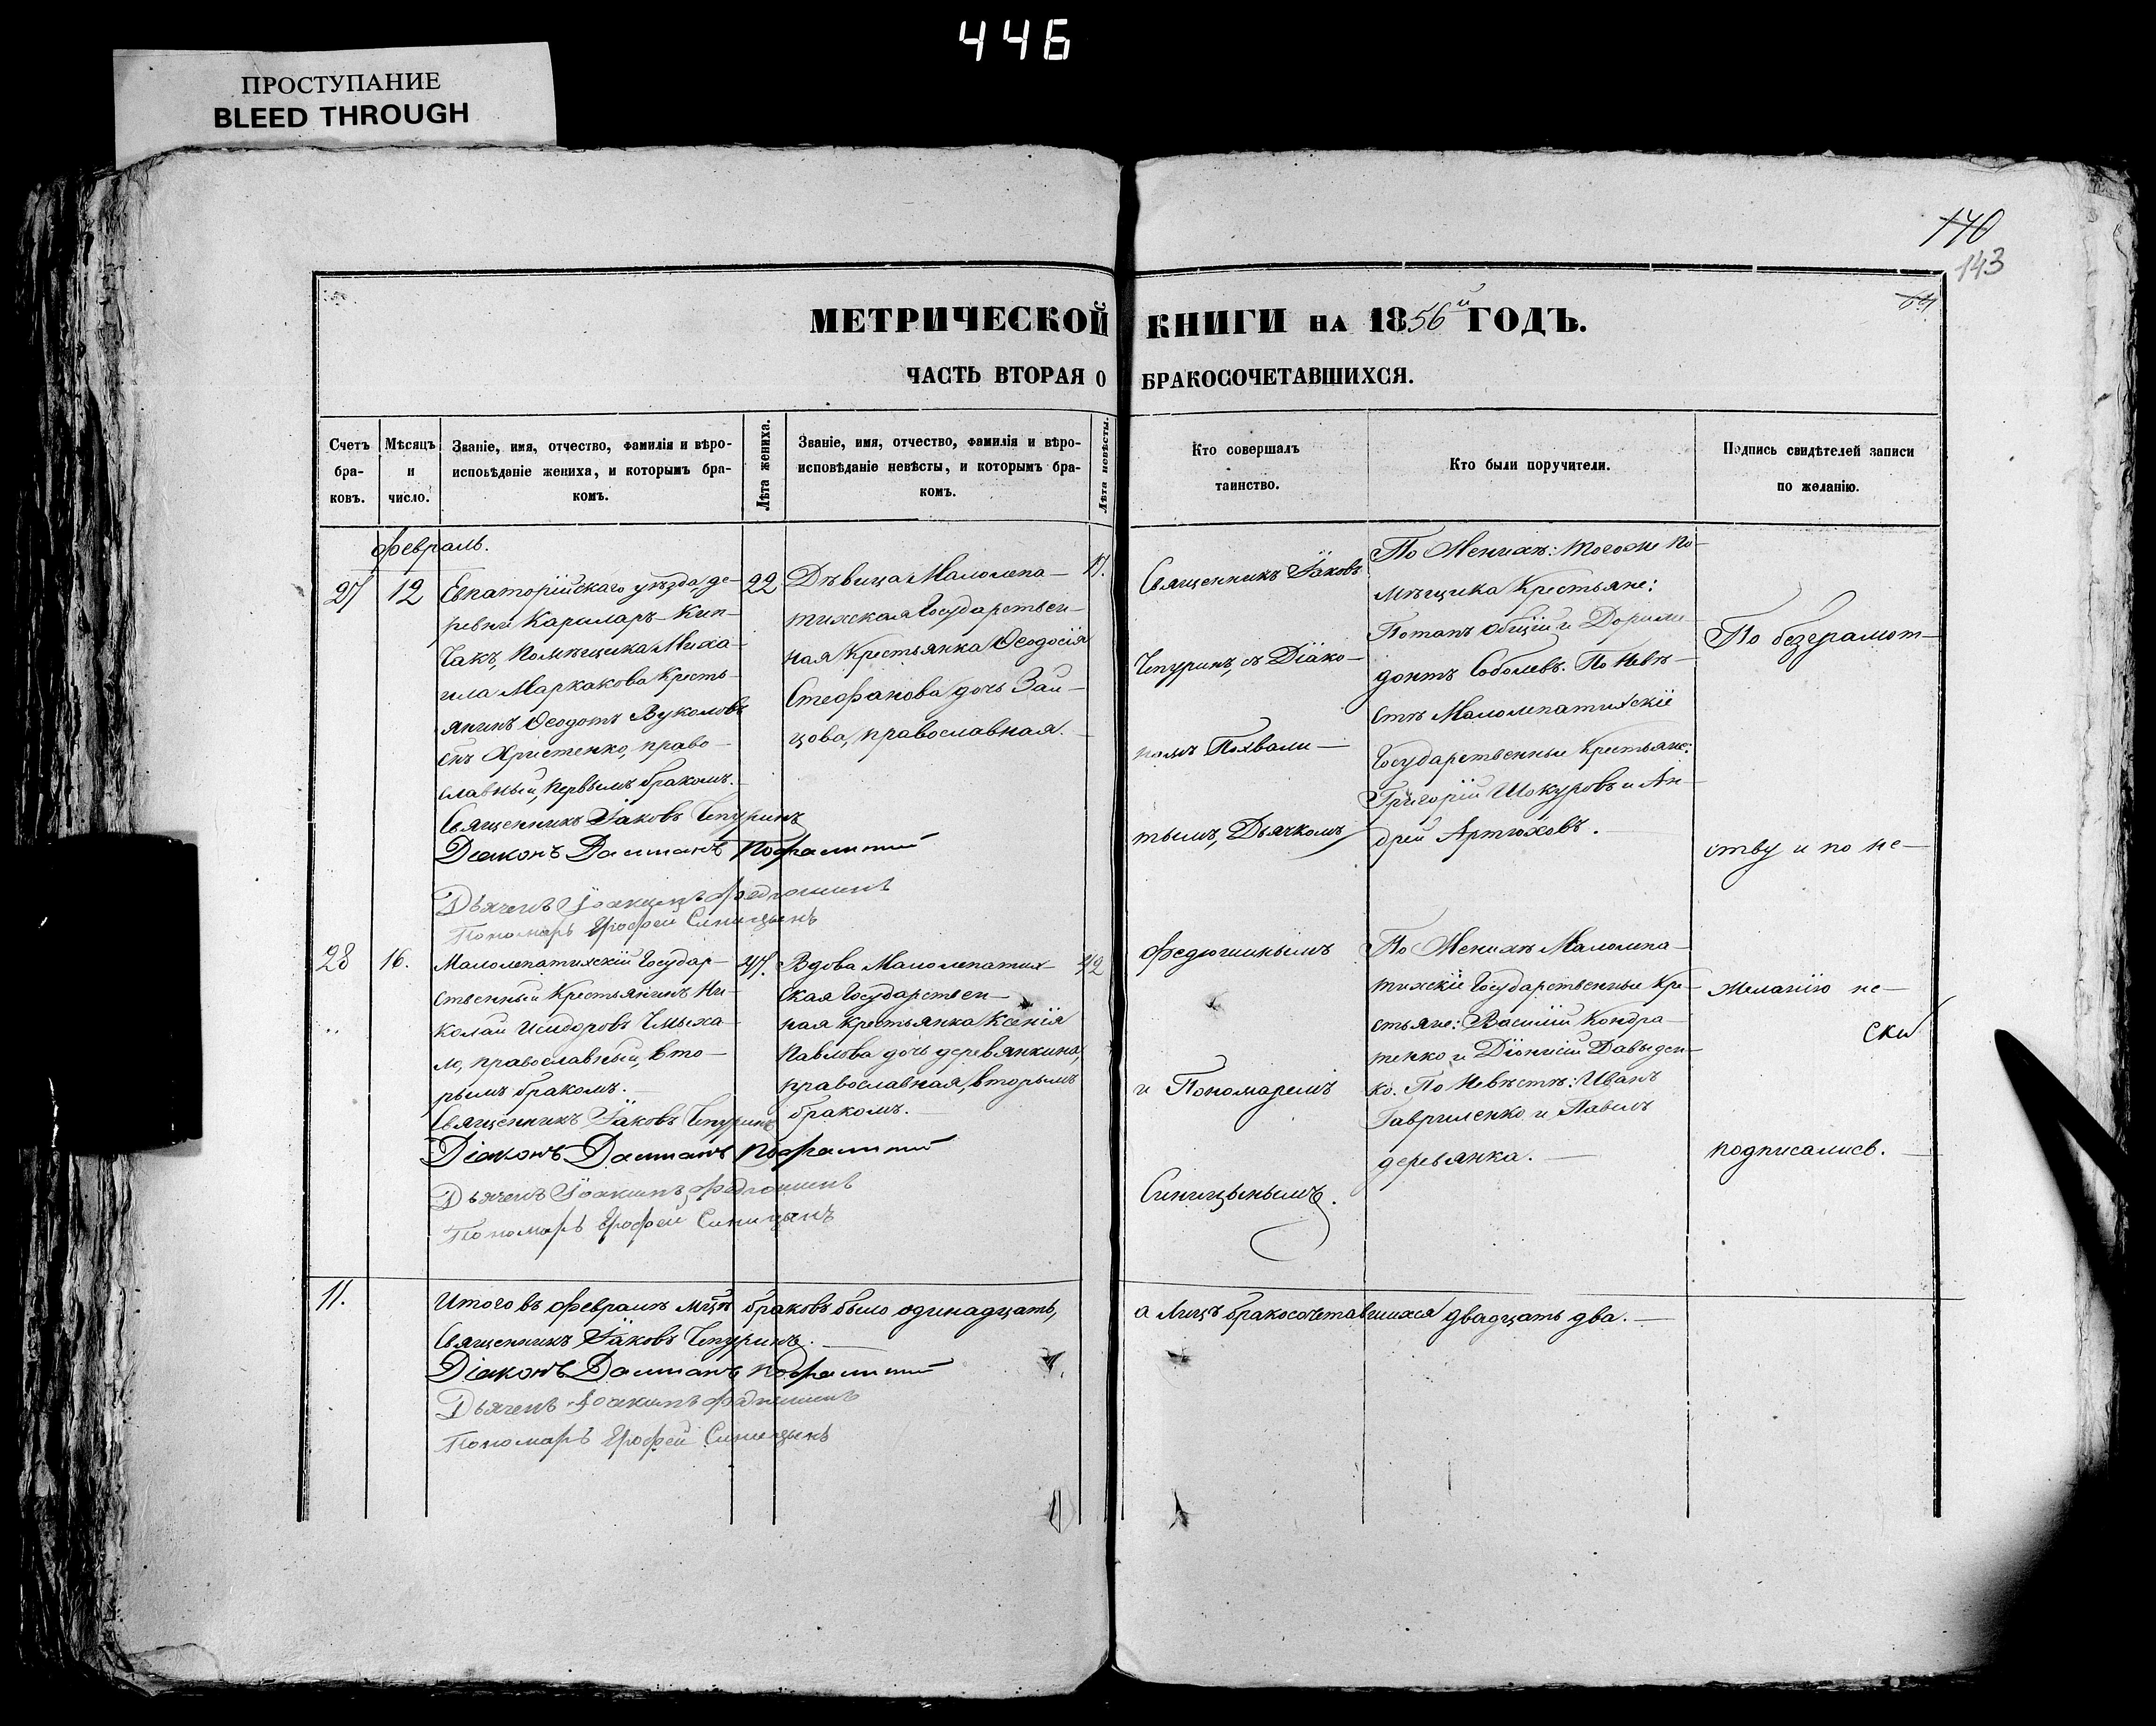 446
ПРОСТУПАНИЕ
BLEED THROUGH
140
143
МЕТРИЧЕСКОЙ КНИГИ НА 1856й ГОДЪ.
ЧАСТЬ ВТОРАЯ О БРАКОСОЧЕТАВШИХСЯ.
Счетъ бра-ковъ.
Мѣсяцъ и число.
Званіе, имя, отчество, фамилія и вѣро-
исповѣданіе жениха, и которымъ бра-
комъ.
Лѣта жениха.
Званіе, имя, отчество, фамилія и вѣро-
исповѣданіе невѣсты, и которымъ бра-
комъ.
Лѣта невѣсты.
Кто совершалъ
таинство.
Кто были поручители.
Подпись свидѣтелей записи
по желанію.
февраль.
27
12
Евпаторійскаго уѣзда, де-
ревни Каримаръ-Кип-
чакъ, Помѣщика Миха-
ила Маркакова Кресть-
янинъ Ѳеодотъ Вуколовъ
снъ Христенко, право-
славный, первымъ бракомъ.
Священникъ Іаковъ Чепуринъ
Діаконъ Далматъ
Дьячекъ Іоакимъ Федюшинъ
Пономарь Ерофей Синицынъ
22
Дѣвица Малолепа-
тихская Государствен-
ная Крестьянка Ѳеодосія
Стефанова дочь Зай-
цова, православная.
Священникъ Іаковъ
Чепуринъ, съ Діако-
номъ Похвали-
тымъ, Дьячкомъ
Федюшинымъ
и Пономаремъ
Синицынымъ.
По Женихѣ: тогоже по-
мѣщика Крестьяне:
Потапъ Общій и Дорими-
донтъ Соболевъ. По Невѣ-
стѣ Малолепатихскіе
Государственные Крестьяне:
Григорій Шокуровъ и Ан-
дрей Артюховъ.
По безграмот-
ству и по не-
желанію не-
подписались.
28
16.
Малолепатихскій Государ-
ственный Крестьянинъ Ни-
колай Исидоровъ Чмыха-
ло, православный, вто-
рымъ бракомъ.
Священникъ Іаковъ Чепуринъ
Діаконъ Далматъ
Дьячекъ Іоакимъ Федюшинъ
Пономарь Ерофей Синицынъ
47.
Вдова Малолепатих-
ская Государствен-
ная крестьянка Ксенія
Павлова дочь деревянкина,
православная, вторымъ
бракомъ.
42
По Женихѣ Малолепа-
тихскіе Государственные Кре-
стьяне: Василій Кондра-
тенко и Діонисій Давыден-
ко. По Невѣстѣ: Иванъ
Гавриленко и Павелъ
деревянка.
11.
Итого въ Февралѣ мцѣ браковъ было одинадцать, а лицъ бракосочетавшихся двадцать два.
Священникъ Іаковъ Чепуринъ.
Діаконъ Далматъ
Дьячекъ Іоакимъ Федюшинъ
Пономарь Ерофей Синицынъ